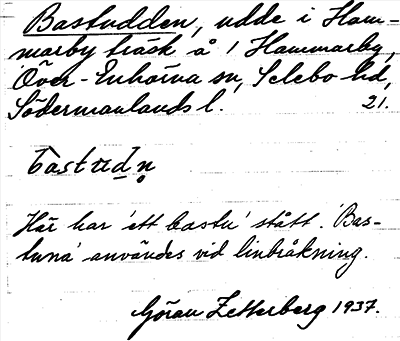 Bastudden, udde i Ham-
marby träsk å 1 Hammarby,
Över-Enhörna sn, Selebo hd,
Södermanlands l. 21.
bastud̲n̥
Här har 'ett bastu' stått. 'Bas-
tuna' användes vid linbråkning.
Göran Zetterberg 1937.